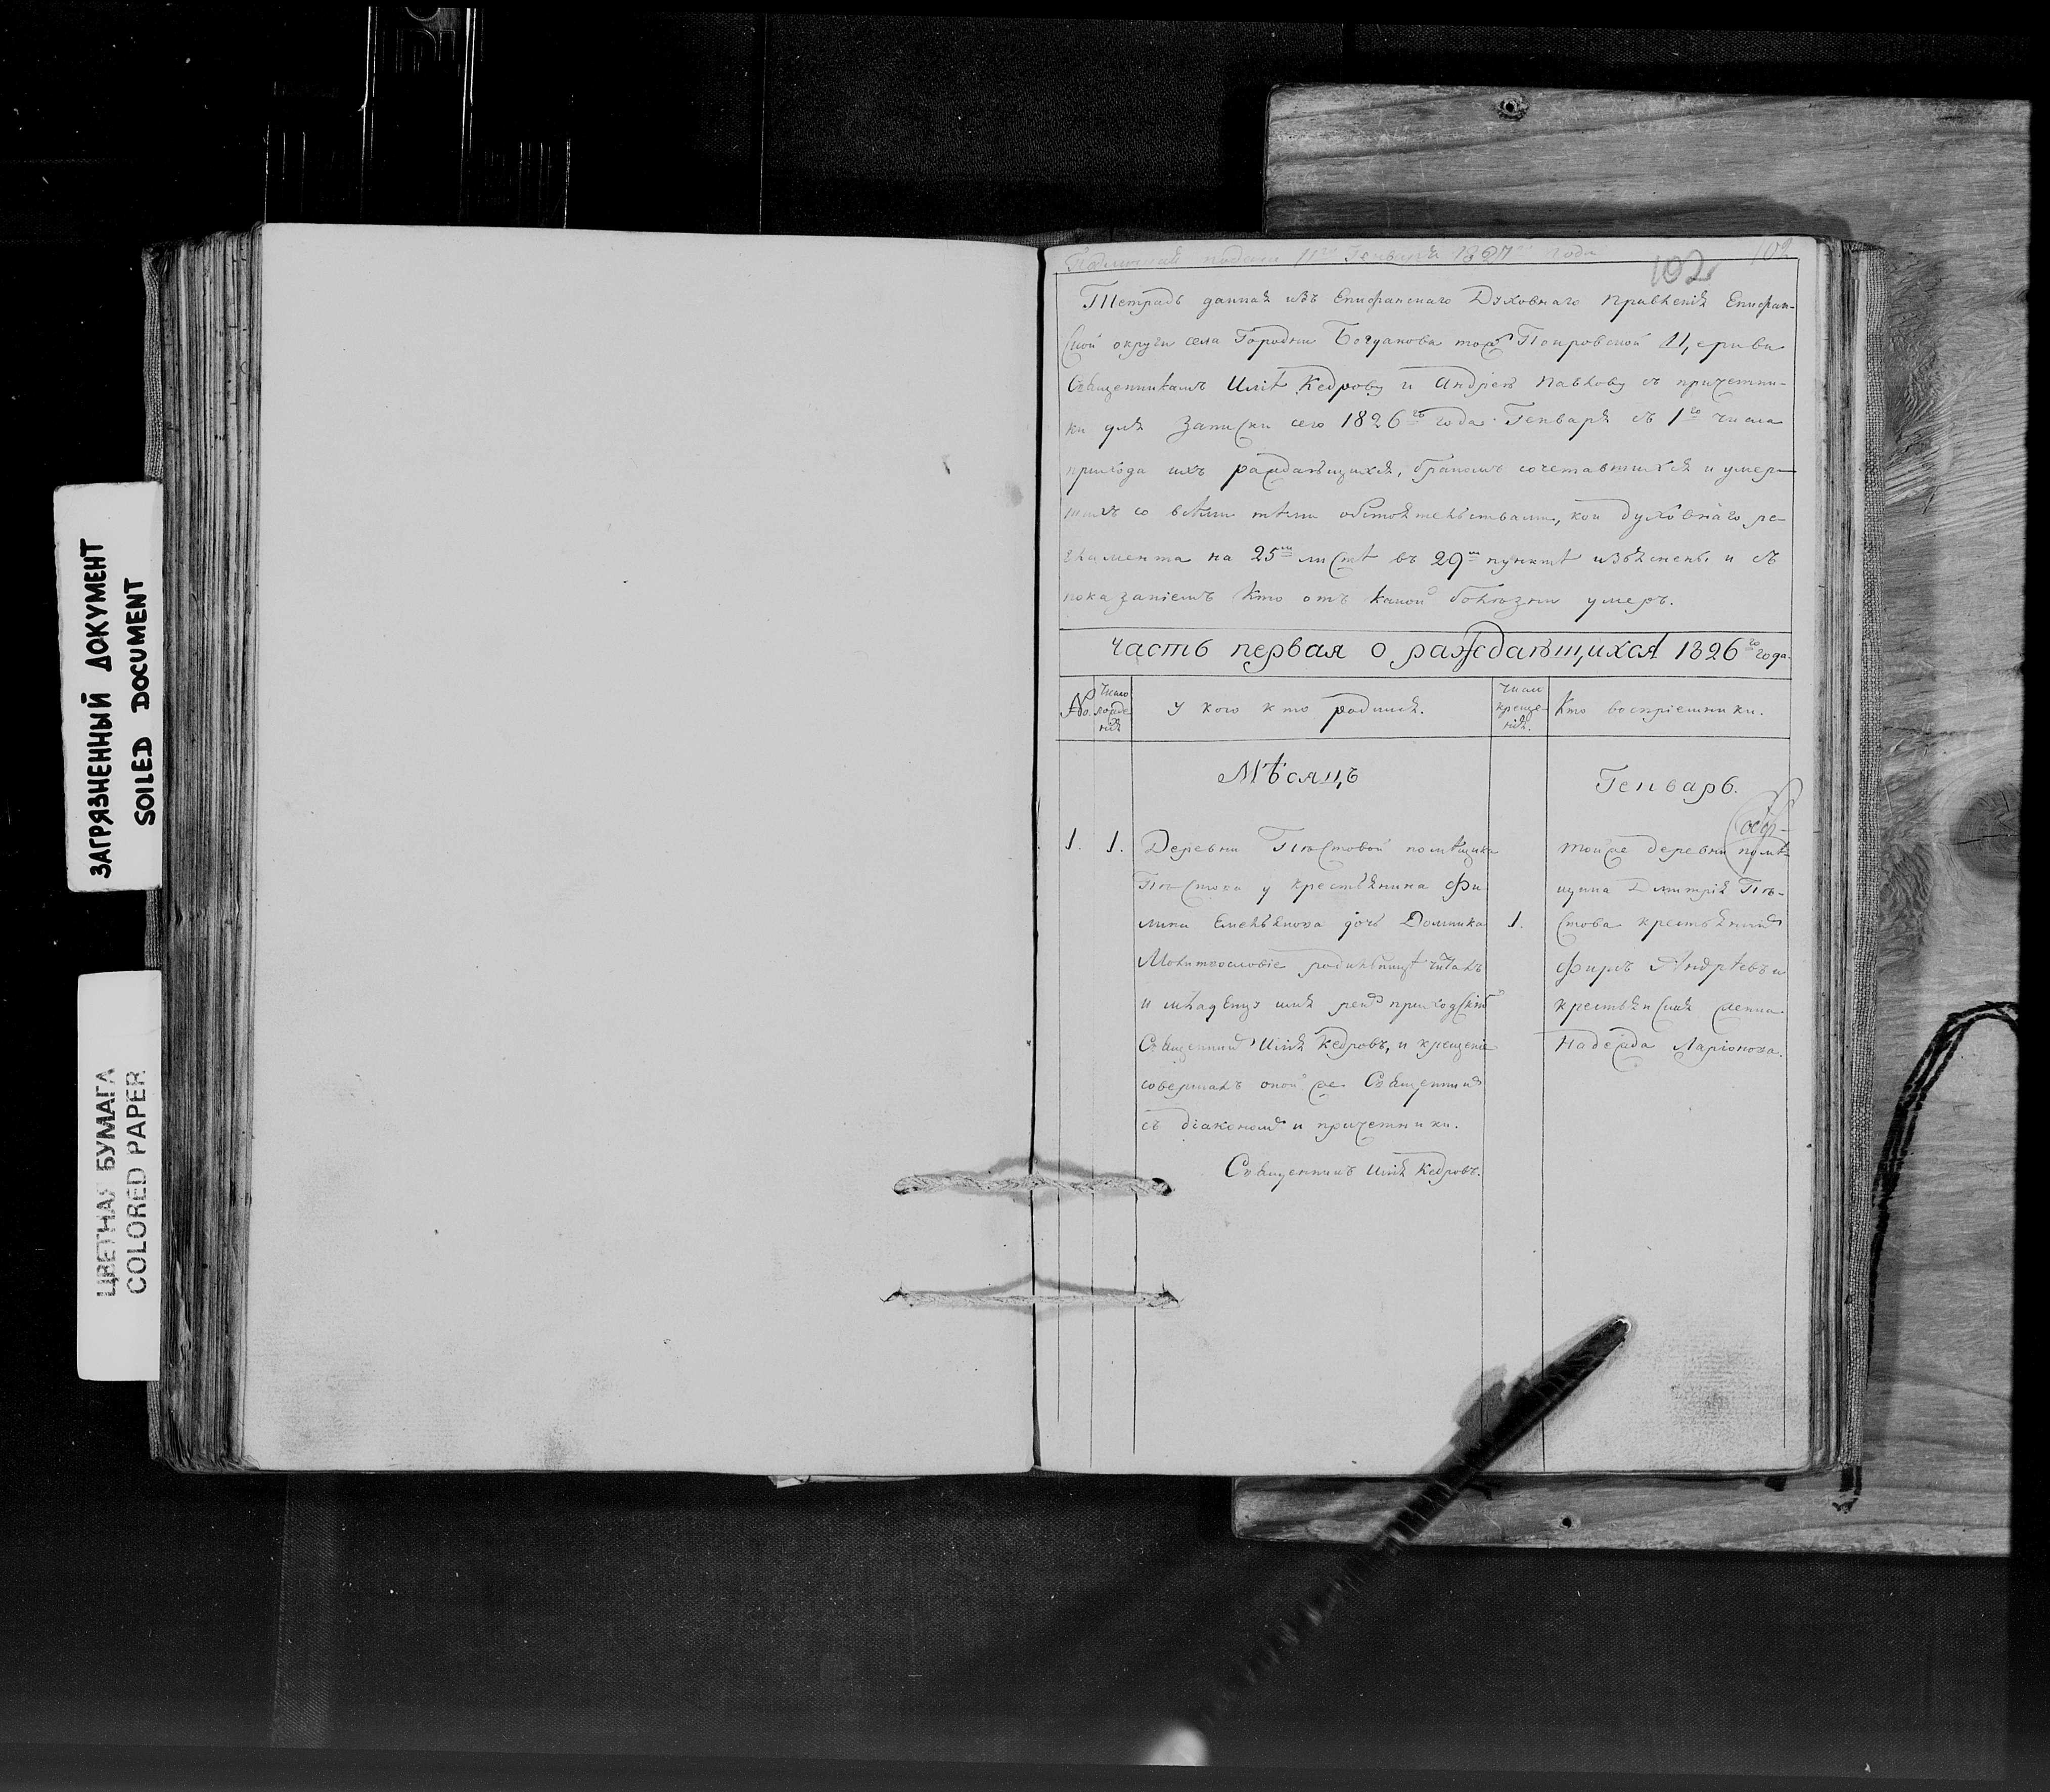 ЗАГРЯЗНЕННЫЙ ДОКУМЕНТ
SOILED DOCUMENT
ЦВЕТНАЯ БУМАГА
COLORED PAPER
подана 11го Генваря 1827го года
102
102
Тетрадь данная изъ Епифанскаго Духовнаго Правленія Епифан-
ской округи села Городни Богданова тожъ Покровской Церкви
Священникамъ Иліѣ Кедрову и Андрею Павлову съ причетни-
ки для записки сего 1826го года Генваря съ 1го числа
прихода ихъ раждающихся, бракомъ сочетавшихся и умер-
шихъ со всѣми тѣми обстоятельствами, кои духовнаго ре-
гламента на 25м листѣ въ 29м пунктѣ изъяснены и съ
показаніемъ кто отъ какой болѣзни умеръ.
Часть первая о раждающихся 1826го года
No. Число рожденія
У кого кто родился.
Число крещенія.
Кто воспріемники.
Мѣсяцъ
Генварь.
1. 1. Деревни помѣщика
у крестьянина Фи-
липа Емельянова дочь Домника
Молитвословіе родильницѣ читалъ
и младенцу имя рекъ приходскій
Священникъ Илія Кедровъ, и крещеніе
совершалъ оной же Священникъ
съ діакономъ и причетники.
Священникъ Илія Кедровъ.
1.
тойже деревни помѣ-
щика Дмитрія
стова крестьянинъ
фиръ Андрѣевъ и
крестьянская
Надежда Ларіонова.